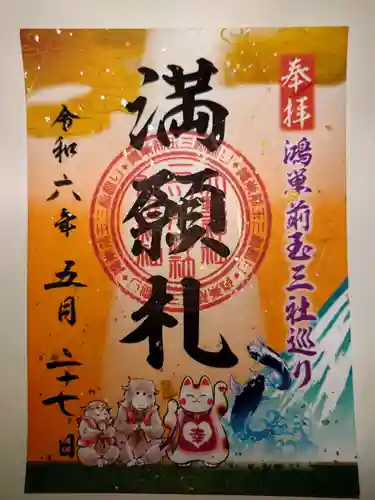 奉拝
鴻巣前玉三社巡り
満願札
令和六年五月二十七日
幸